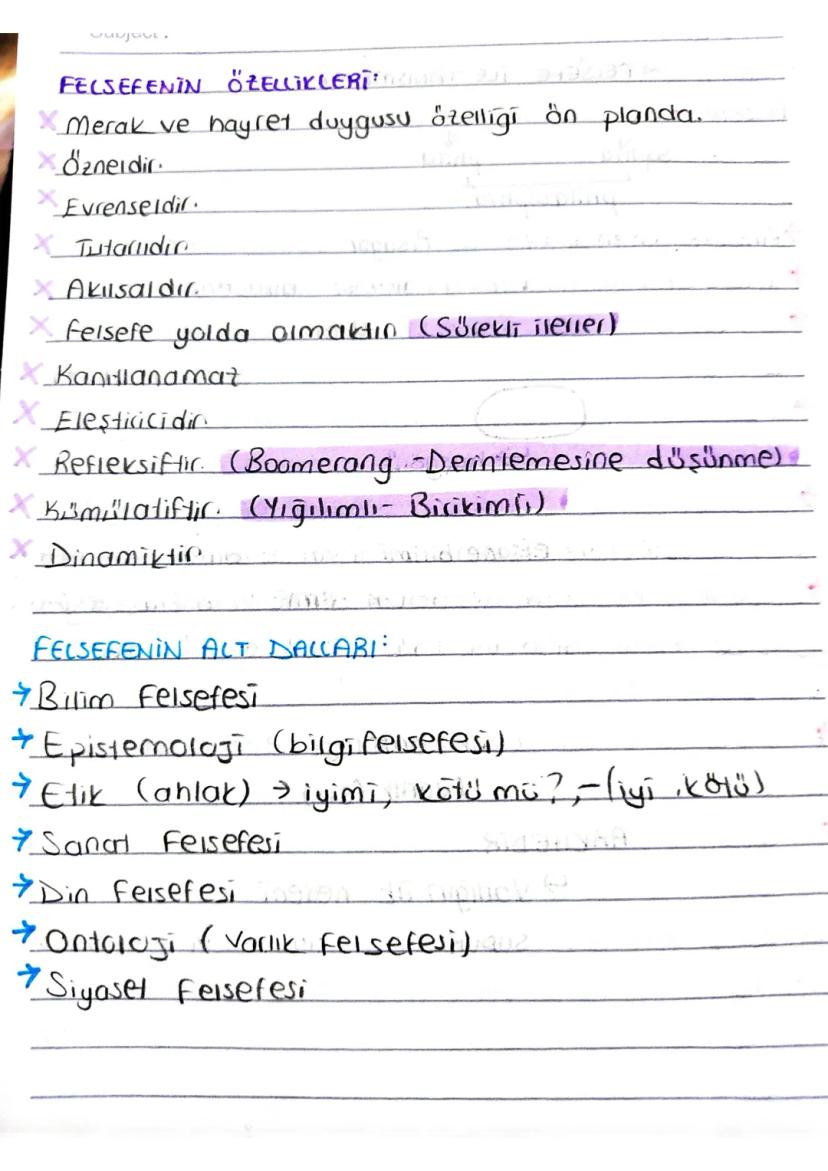 Subject.
FELSEFENİN ÖZELLİKLERİ:
Merak ve hayret duygusu özelliği ön planda.
Özneldir.
Evrenseldir.
Tutarlıdır.
Akılsaldır.
Felsefe yolda olmaktır. (Sürekli ilerler)
Kanıtlanamaz
Eleştiricidir.
Refleksiftir. (Boomerang - Derinlemesine düşünme)
Kümülatiftir. (Yığılımlı - Birikimli)
Dinamiktir.
FELSEFENİN ALT DALLARI:
→ Bilim Felsefesi
→ Epistemoloji (bilgi felsefesi)
→ Etik (ahlak) → iyimi, kötü mü?, - (iyi, kötü)
→ Sanat Felsefesi
→ Din Felsefesi
→ Ontoloji (Varlık Felsefesi)
→ Siyaset Felsefesi